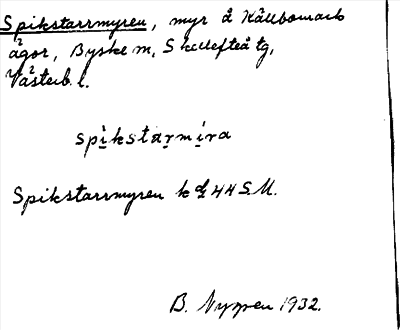 Spikstarrmyren, myr å Källbomark
ägor, Byske sn, Skellefteå tg,
Västerb. l.
spikstarmira
Spikstarrmyren k 44 S.M.
B. Nyman 1932.